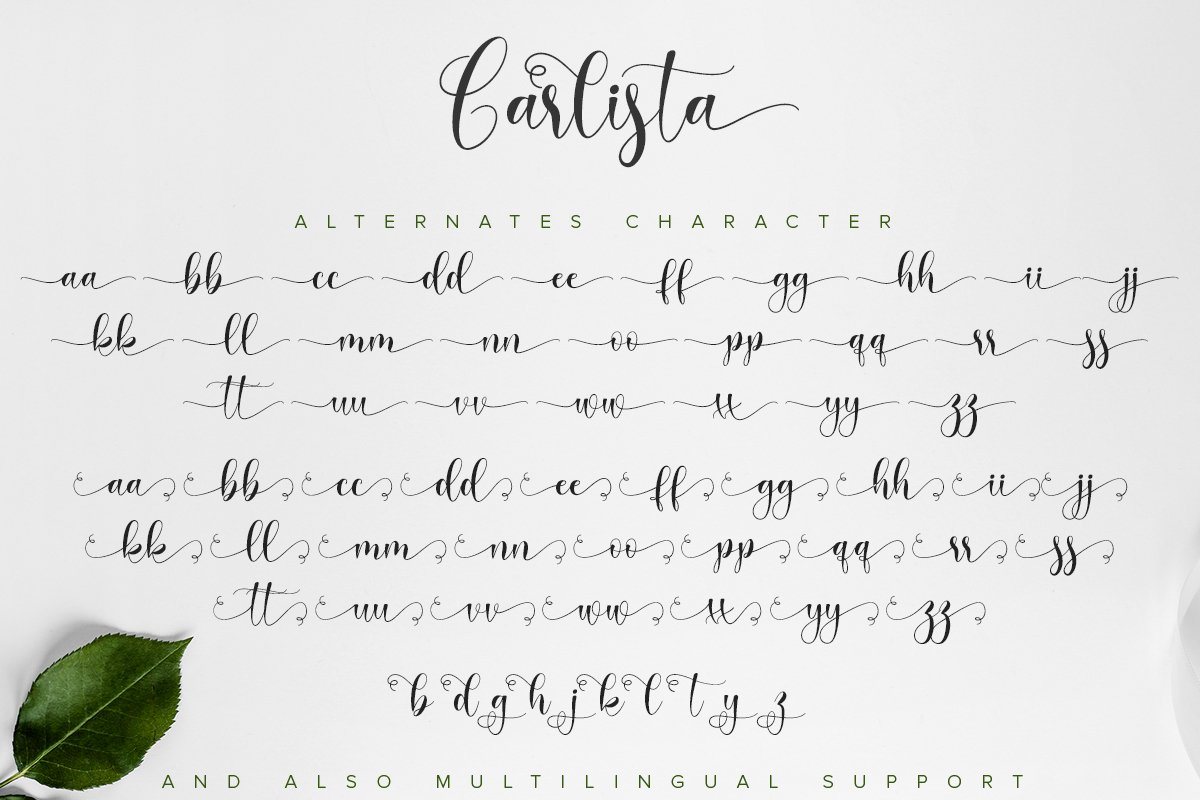 Carlista
ALTERNATES CHARACTER
aa bb cc dd ee ff gg hh ii jj
kk ll mm nn oo pp qq rr ss
tt uu vv ww xx yy zz
aa bb cc dd ee ff gg hh ii jj
kk ll mm nn oo pp qq rr ss
tt uu vv ww xx yy zz
b d g h j k l t y z
AND ALSO MULTILINGUAL SUPPORT